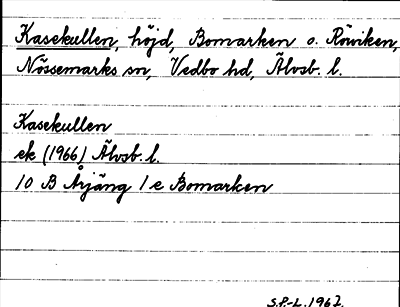 Kasekullen, höjd, Bomarken o. Röviken,
Nössemarks sn, Vedbo hd, Älvsb. l.
Kasekullen
ek (1966) Älvsb. l.
10 B Årjäng 1 e Bomarken
S.P.-L. 1967.